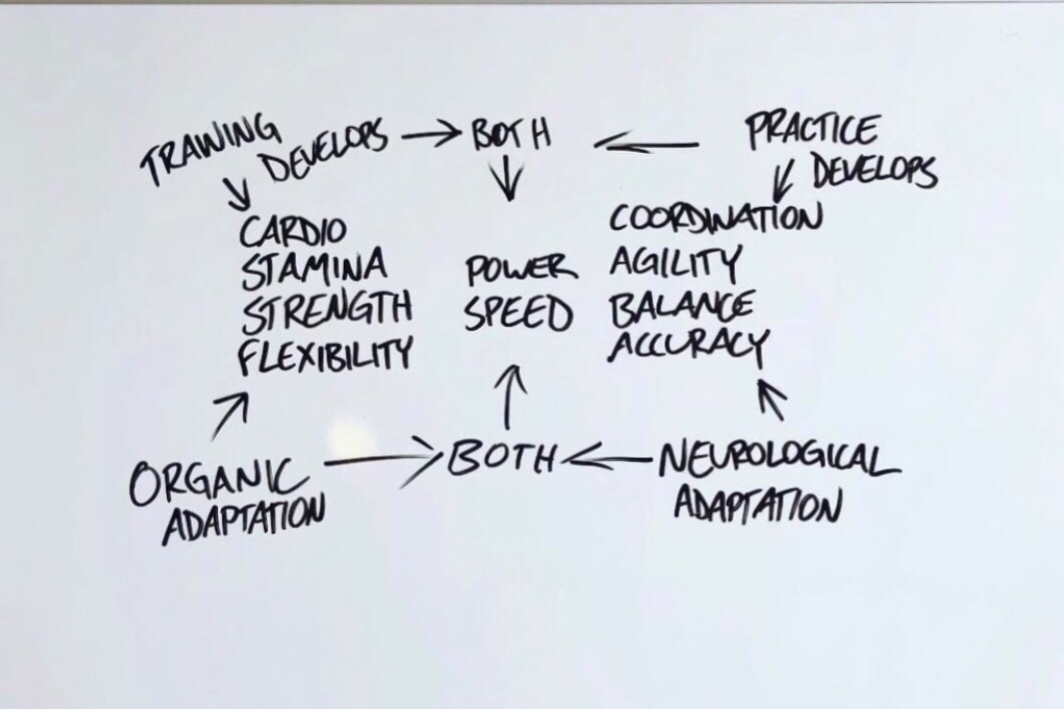 TRAINING DEVELOPS → BOTH ← PRACTICE DEVELOPS
CARDIO
STAMINA
STRENGTH
FLEXIBILITY
POWER
SPEED
COORDINATION
AGILITY
BALANCE
ACCURACY
ORGANIC
ADAPTATION
BOTH
NEUROLOGICAL
ADAPTATION